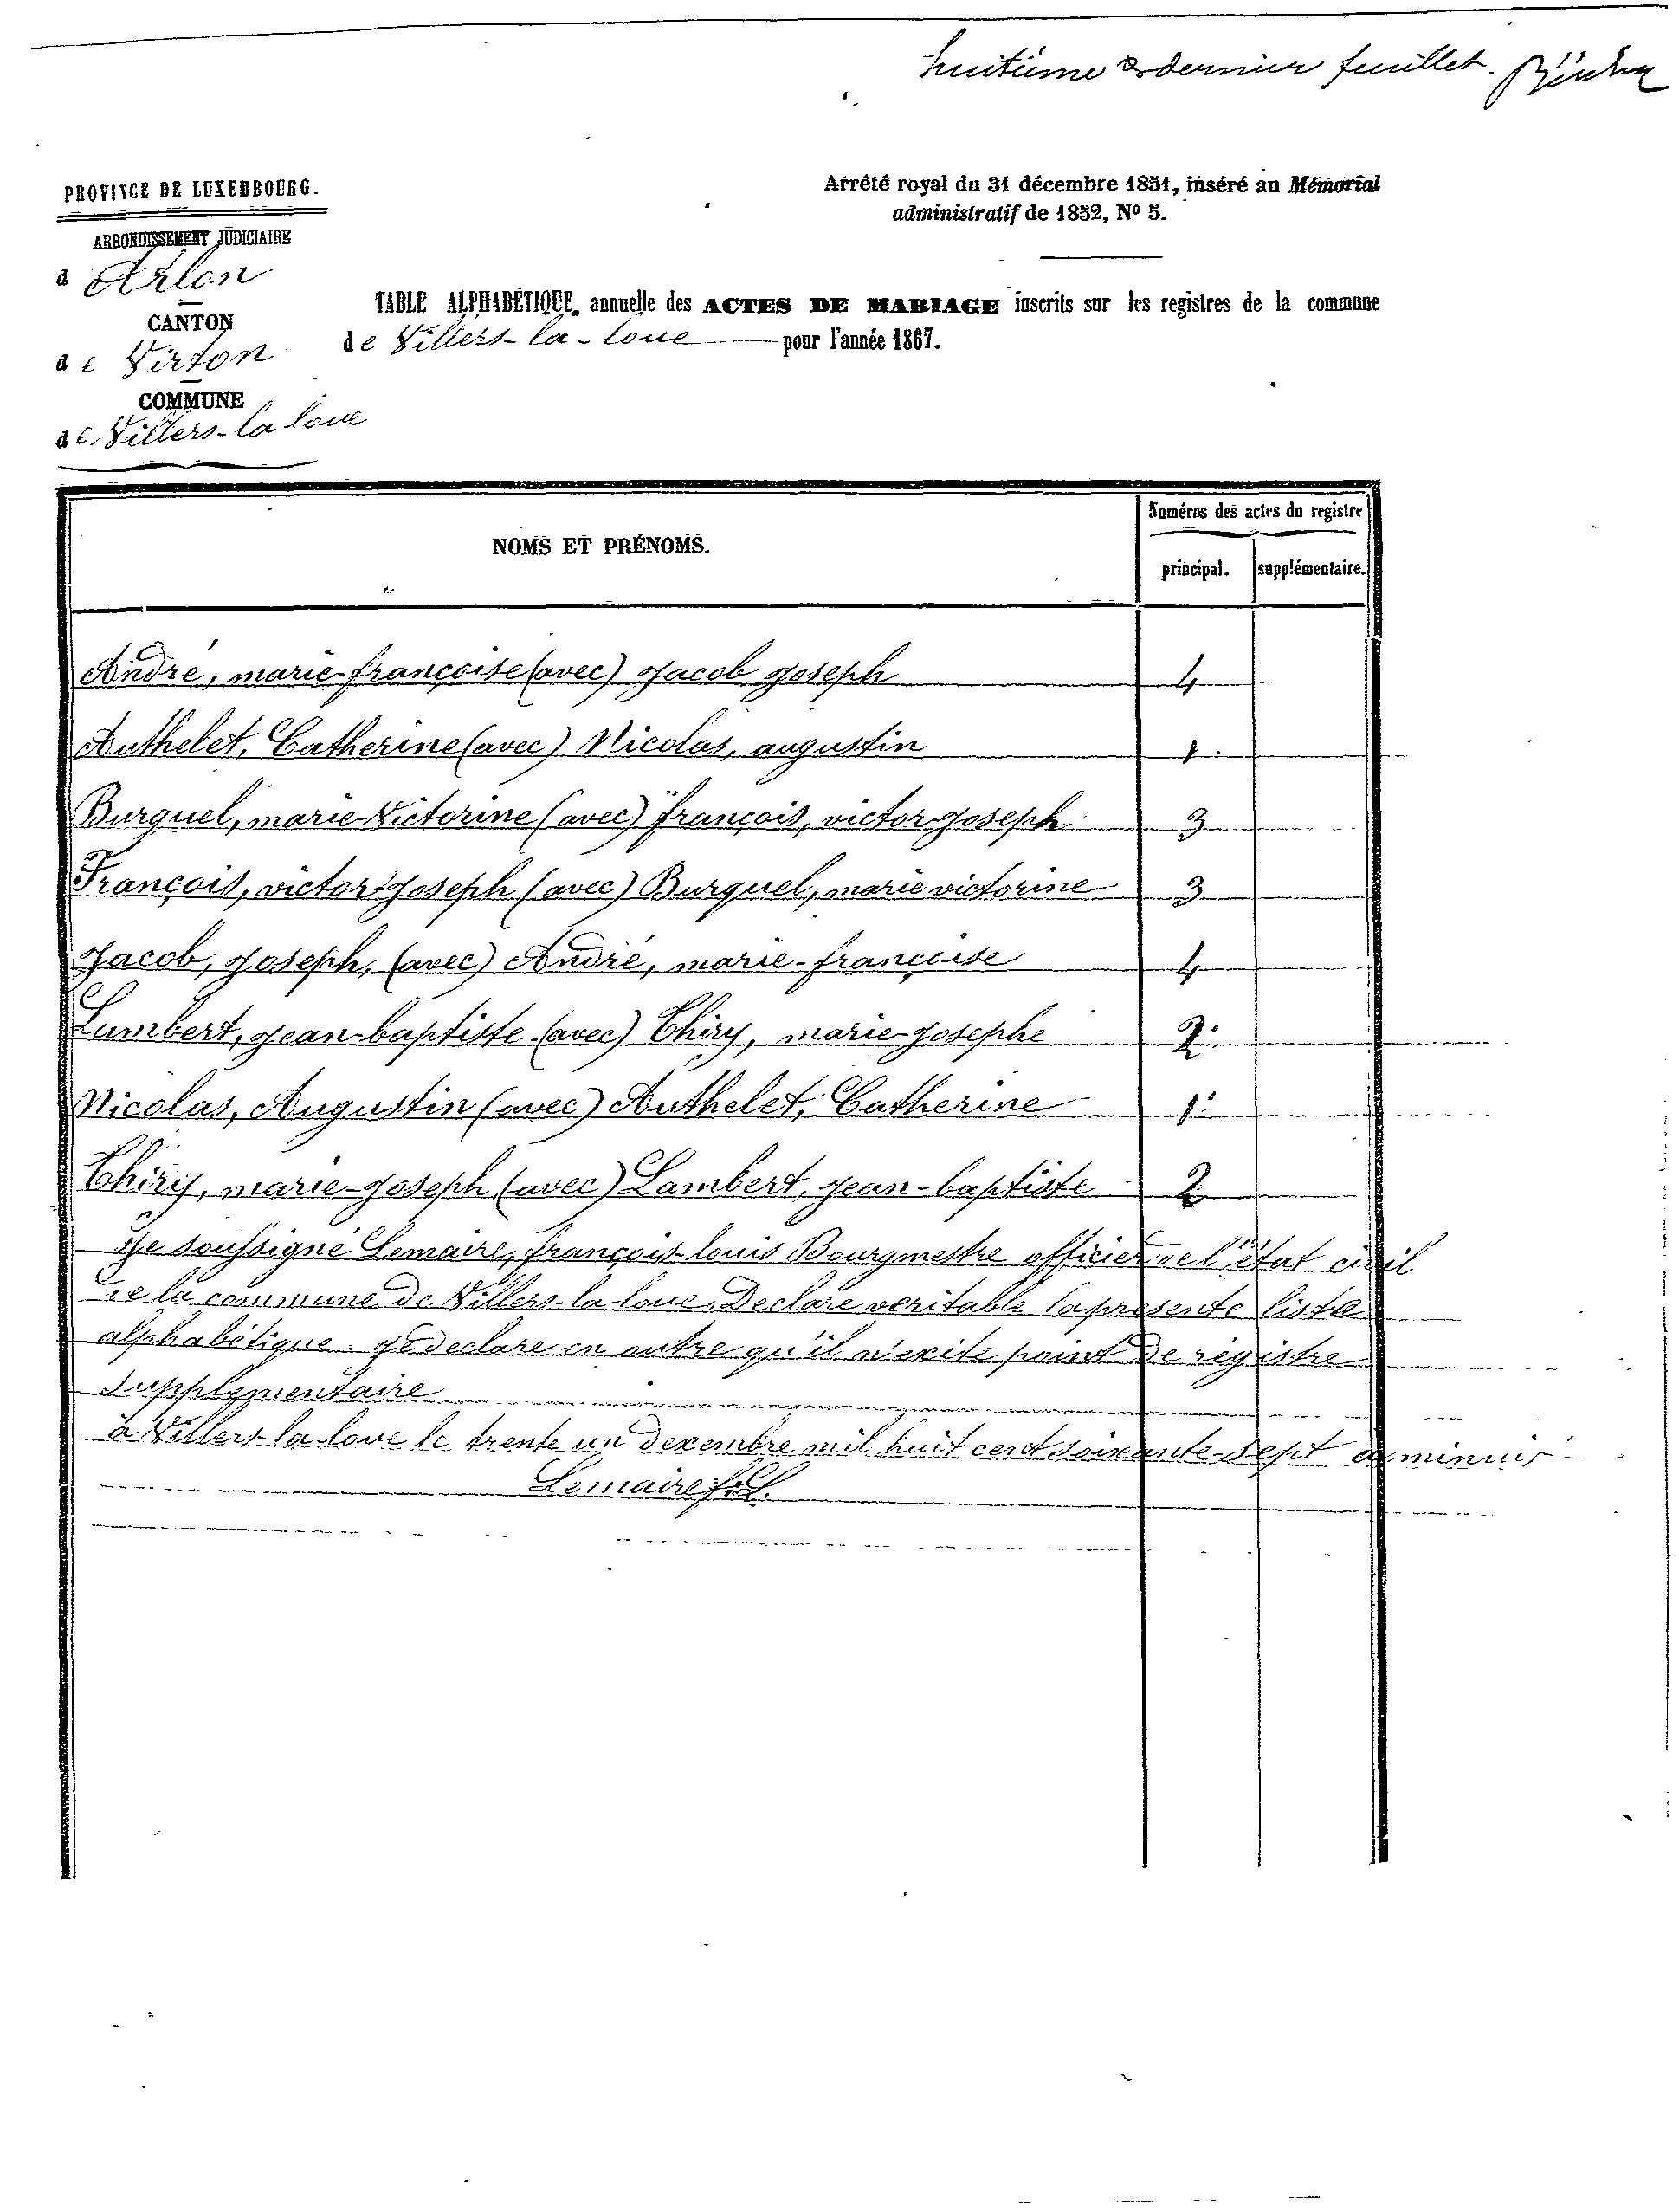 huitième & dernier feuillet.
PROVINCE DE LUXEMBOURG.
ARRONDISSEMENT JUDICIAIRE
d'Arlon
CANTON
de Virton
COMMUNE
de Villers-la-loue
Arrêté royal du 31 décembre 1851, inséré au Mémorial
administratif de 1852, No 5.
TABLE ALPHABÉTIQUE, annuelle des ACTES DE MARIAGE inscrits sur les registres de la commune
de Villers-la-loue pour l'année 1867.
NOMS ET PRÉNOMS.
Numéros des actes du registre
principal. supplémentaire.
André, marie-françoise (avec) Jacob Joseph 4
Authelet, Catherine (avec) Nicolas, augustin 1
Burquel, marie-Victorine (avec) françois, victor-Joseph 3
François, victor-Joseph (avec) Burquel, marie victorine 3
Jacob, Joseph, (avec) André, marie-françoise 4
Lambert, jean-baptiste (avec) Thiry, marie-josephe 2
Nicolas, Augustin (avec) Authelet, Catherine 1
Thiry, marie-joseph (avec) Lambert, jean-baptiste 2
Je soussigné Lemaire, françois-louis Bourgmestre officier de l'état civil
de la commune de Villers-la-loue. Declare veritable la presente liste
alphabétique. je declare en outre qu'il n'exite point de régistre
supplémentaire
à Villers-la-loue le trente un decembre mil huit cent soixante-sept a minuit
Lemaire f. L.